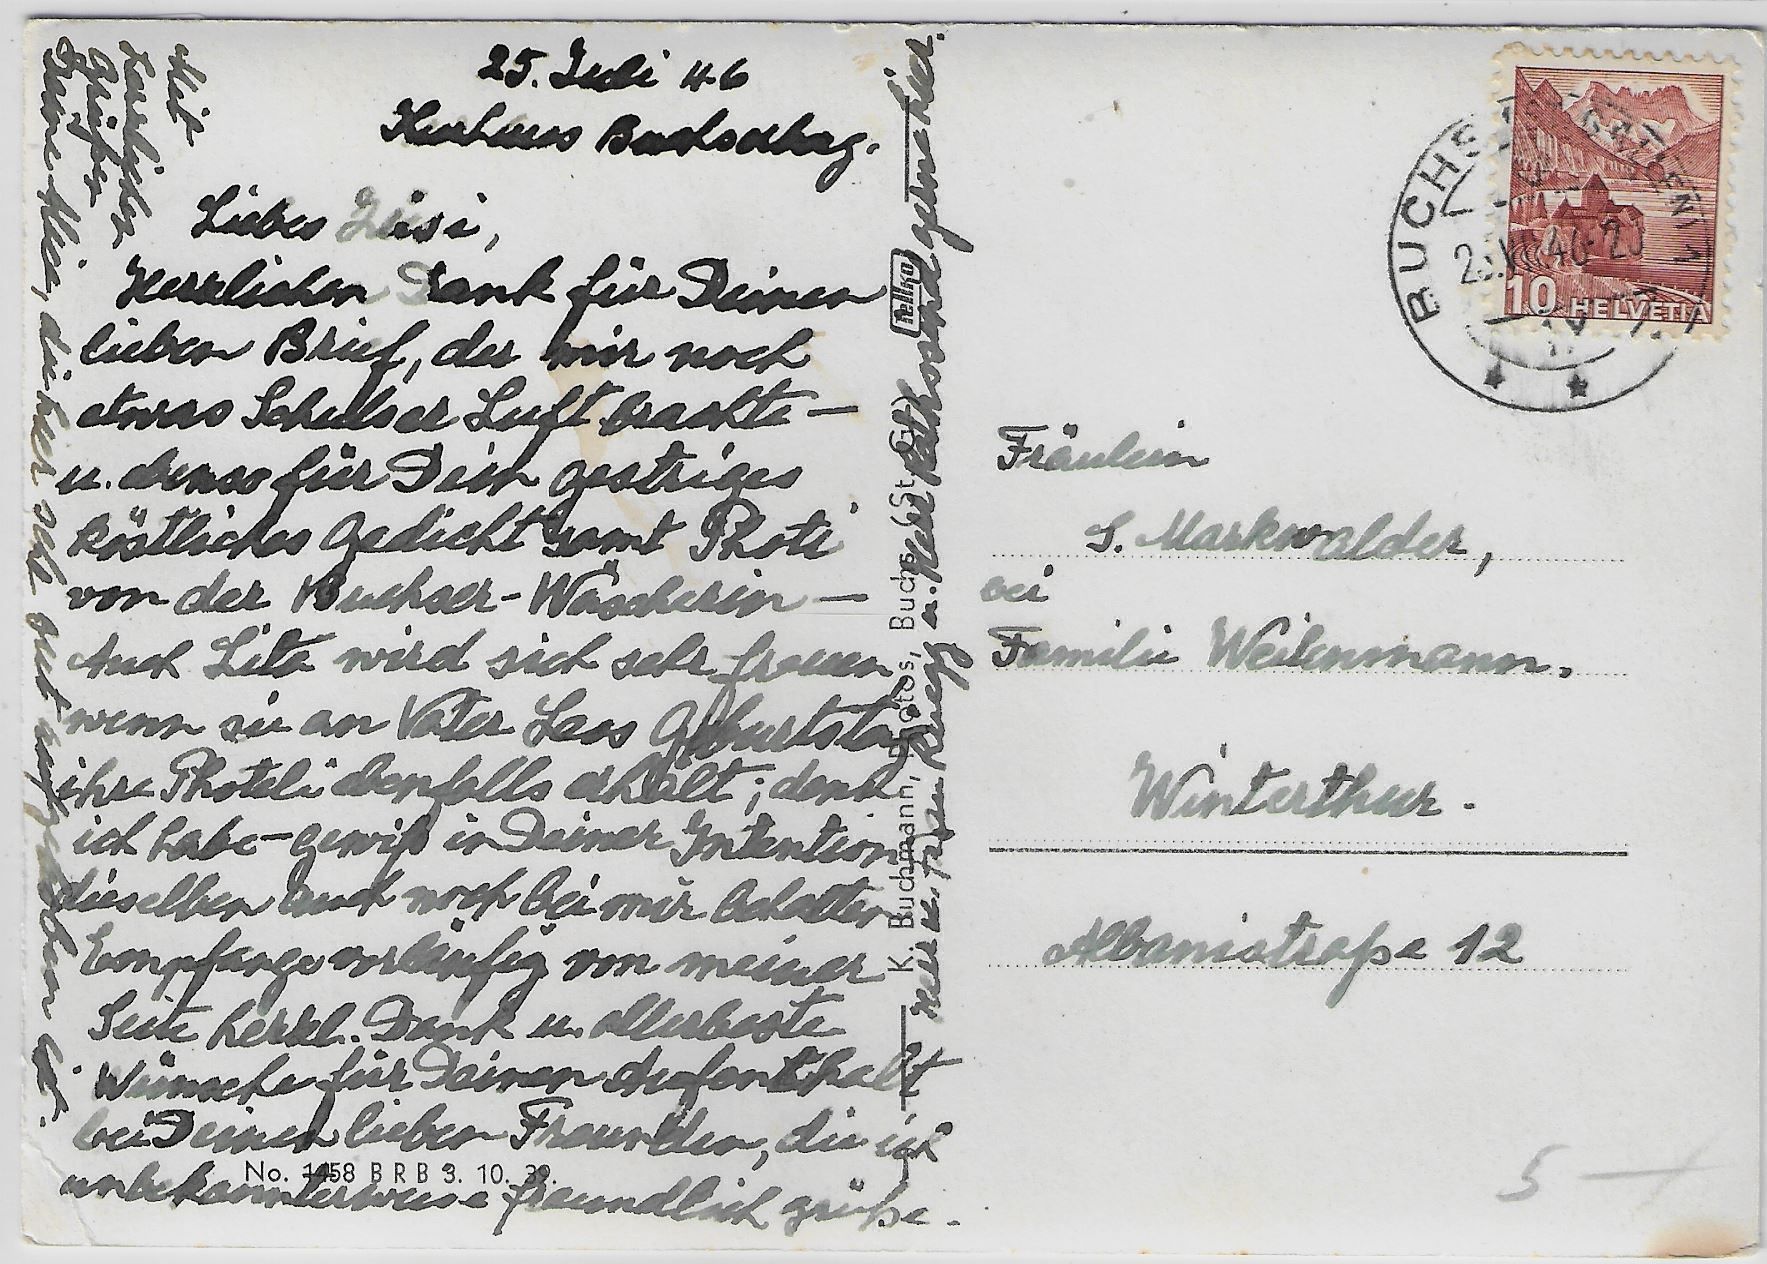 25. Juli 46
Kurhaus Buchserberg.
Liebes Leisi,
Herzlichen Dank für Deinen
lieben Brief, der mir noch
etwas Schulser Luft brachte —
u. ebenso für Dein gestriges
köstliches Gedicht samt Photi
von der Buchser-Wäscherin —
Auch Lita wird sich sehr freuen
wenn sie an Vater Leos Geburtstag
ihre Photeli ebenfalls erhält; denk
ich habe gewiß in Deiner Intention
dieselben auch noch bei mir behalten
Empfange vorläufig von meiner
Seite herzl. Dank u. allerbeste
Wünsche für Deinen Aufenthalt
bei Deinen lieben Freunden, die ich
unbekannterweise freundlich grüße.
Mit
herzlichen
Grüßen
Deine die hier sehr gut aufgehoben ist.
Herr u. Frau u. Herr gutmachen.
No. 1458 BRB 3. 10. 39.
K. Buchmann, Photos, Buchs St. G.
Tellko
BUCHS
46-20
10 HELVETIA
Fräulein
S. Markwalder,
bei
Familie Weilenmann.
Winterthur.
Albanistraße 12
5 —